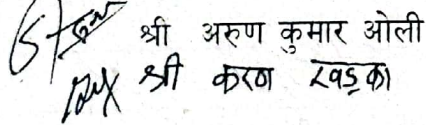 श्री अरुण कुमार ओली
श्री करण खड्का